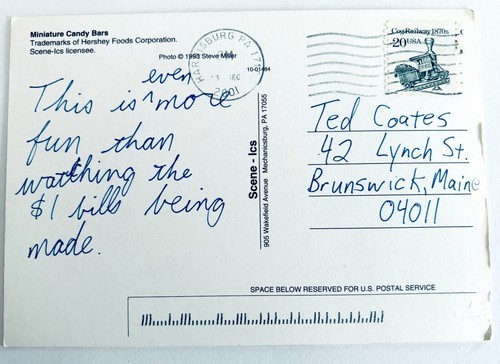 Miniature Candy Bars
Trademarks of Hershey Foods Corporation.
Scene-Ics licensee.
Photo © 1993 Steve Miller
10-01484
HARRISBURG PA 171
DEC
2001
Cog Railway 1870s
20 USA
even
This is ^more
fun than
watching the
$1 bills being
made.
Scene-Ics
905 Wakefield Avenue Mechanicsburg, PA 17055
Ted Coates
42 Lynch St.
Brunswick, Maine
04011
SPACE BELOW RESERVED FOR U.S. POSTAL SERVICE